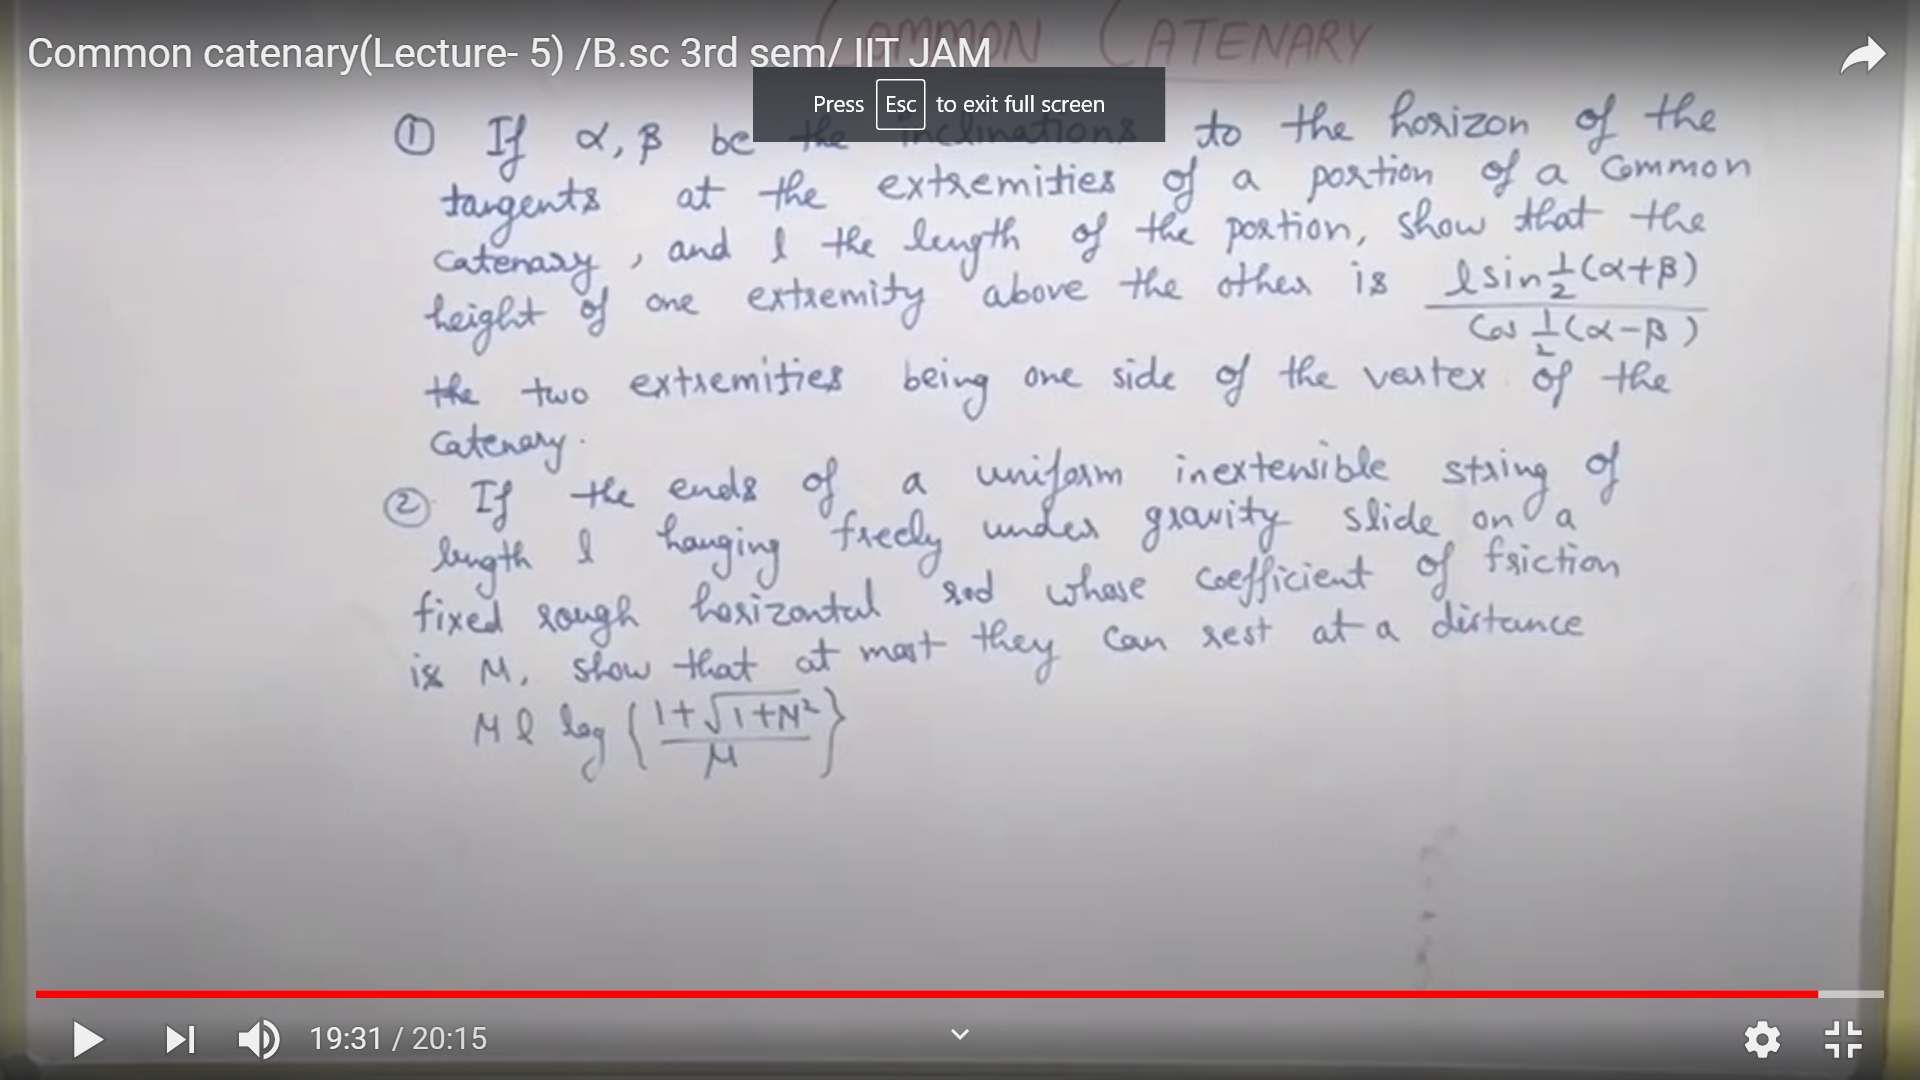 COMMON CATENARY
Common catenary(Lecture- 5) /B.sc 3rd sem/ IIT JAM
Press Esc to exit full screen
① If α, β be the inclinations to the horizon of the
tangents at the extremities of a portion of a Common
Catenary, and l the length of the portion, show that the
height of one extremity above the other is l sin ½(α+β) / Cos ½(α-β)
the two extremities being one side of the vertex of the
Catenary.
② If the ends of a uniform inextensible string of
length l hanging freely under gravity slide on a
fixed rough horizontal rod whose coefficient of friction
is μ, show that at most they can rest at a distance
μ l log { (1+√1+μ²) / μ }
19:31 / 20:15